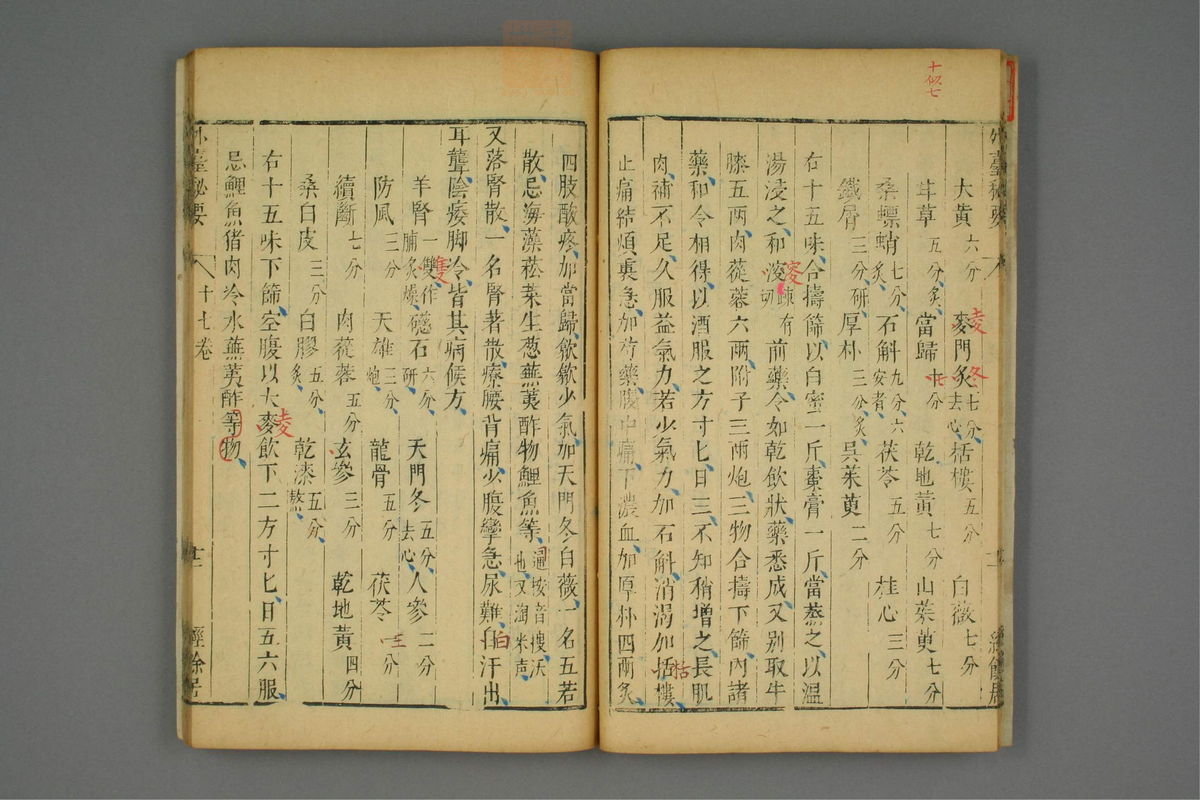 十似七
外臺秘要
大黄六分 麥門冬七分去心 栝樓五分 白薇七分
甘草五分炙 當歸十分 乾地黄七分 山茱萸七分
桑螵蛸七分炙 石斛九分六安者 茯苓五分 桂心三分
鐵屑三分研 厚朴三分炙 吳茱萸二分
右十五味合擣篩以白蜜一斤棗膏一斤當蒸之以温
湯浸之和
前藥令如乾飲狀藥悉成又别取牛
膝五兩肉蓯蓉六兩附子三兩炮三物合擣下篩内諸
藥和令相得以酒服之方寸匕日三不知稍增之長肌
肉補不足久服益氣力若少氣力加石斛消渴加栝樓
止痛結煩裏急加芍藥腹中痛下濃血加厚朴四兩炙
四肢酸疼加當歸歛歛少氣加天門冬白薇一名五若
散忌海藻菘菜生葱蕪荑酢物鯉魚等
又落腎散一名腎著散療腰背痛少腹攣急尿難自汗出
耳聾陰痿脚冷皆其病候方
羊腎一雙作脯炙燥 礠石六分研 天門冬五分去心 人參二分
防風三分 天雄三分炮 龍骨五分 茯苓一分
續斷七分 肉蓯蓉五分 玄參三分 乾地黄四分
桑白皮三分 白膠五分炙 乾漆五分熬
右十五味下篩空腹以大麥飲下二方寸匕日五六服
忌鯉魚猪肉冷水蕪荑酢等物
外臺秘要 十七卷 十二 經餘居